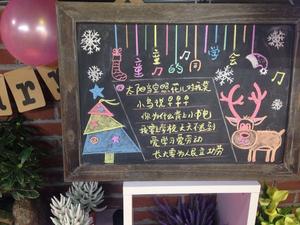 童童的同学会
太阳当空照 花儿对我笑
小鸟说早早早
你为什么背上小书包
我要上学校 天天不迟到
爱学习爱劳动
长大要为人民立功劳